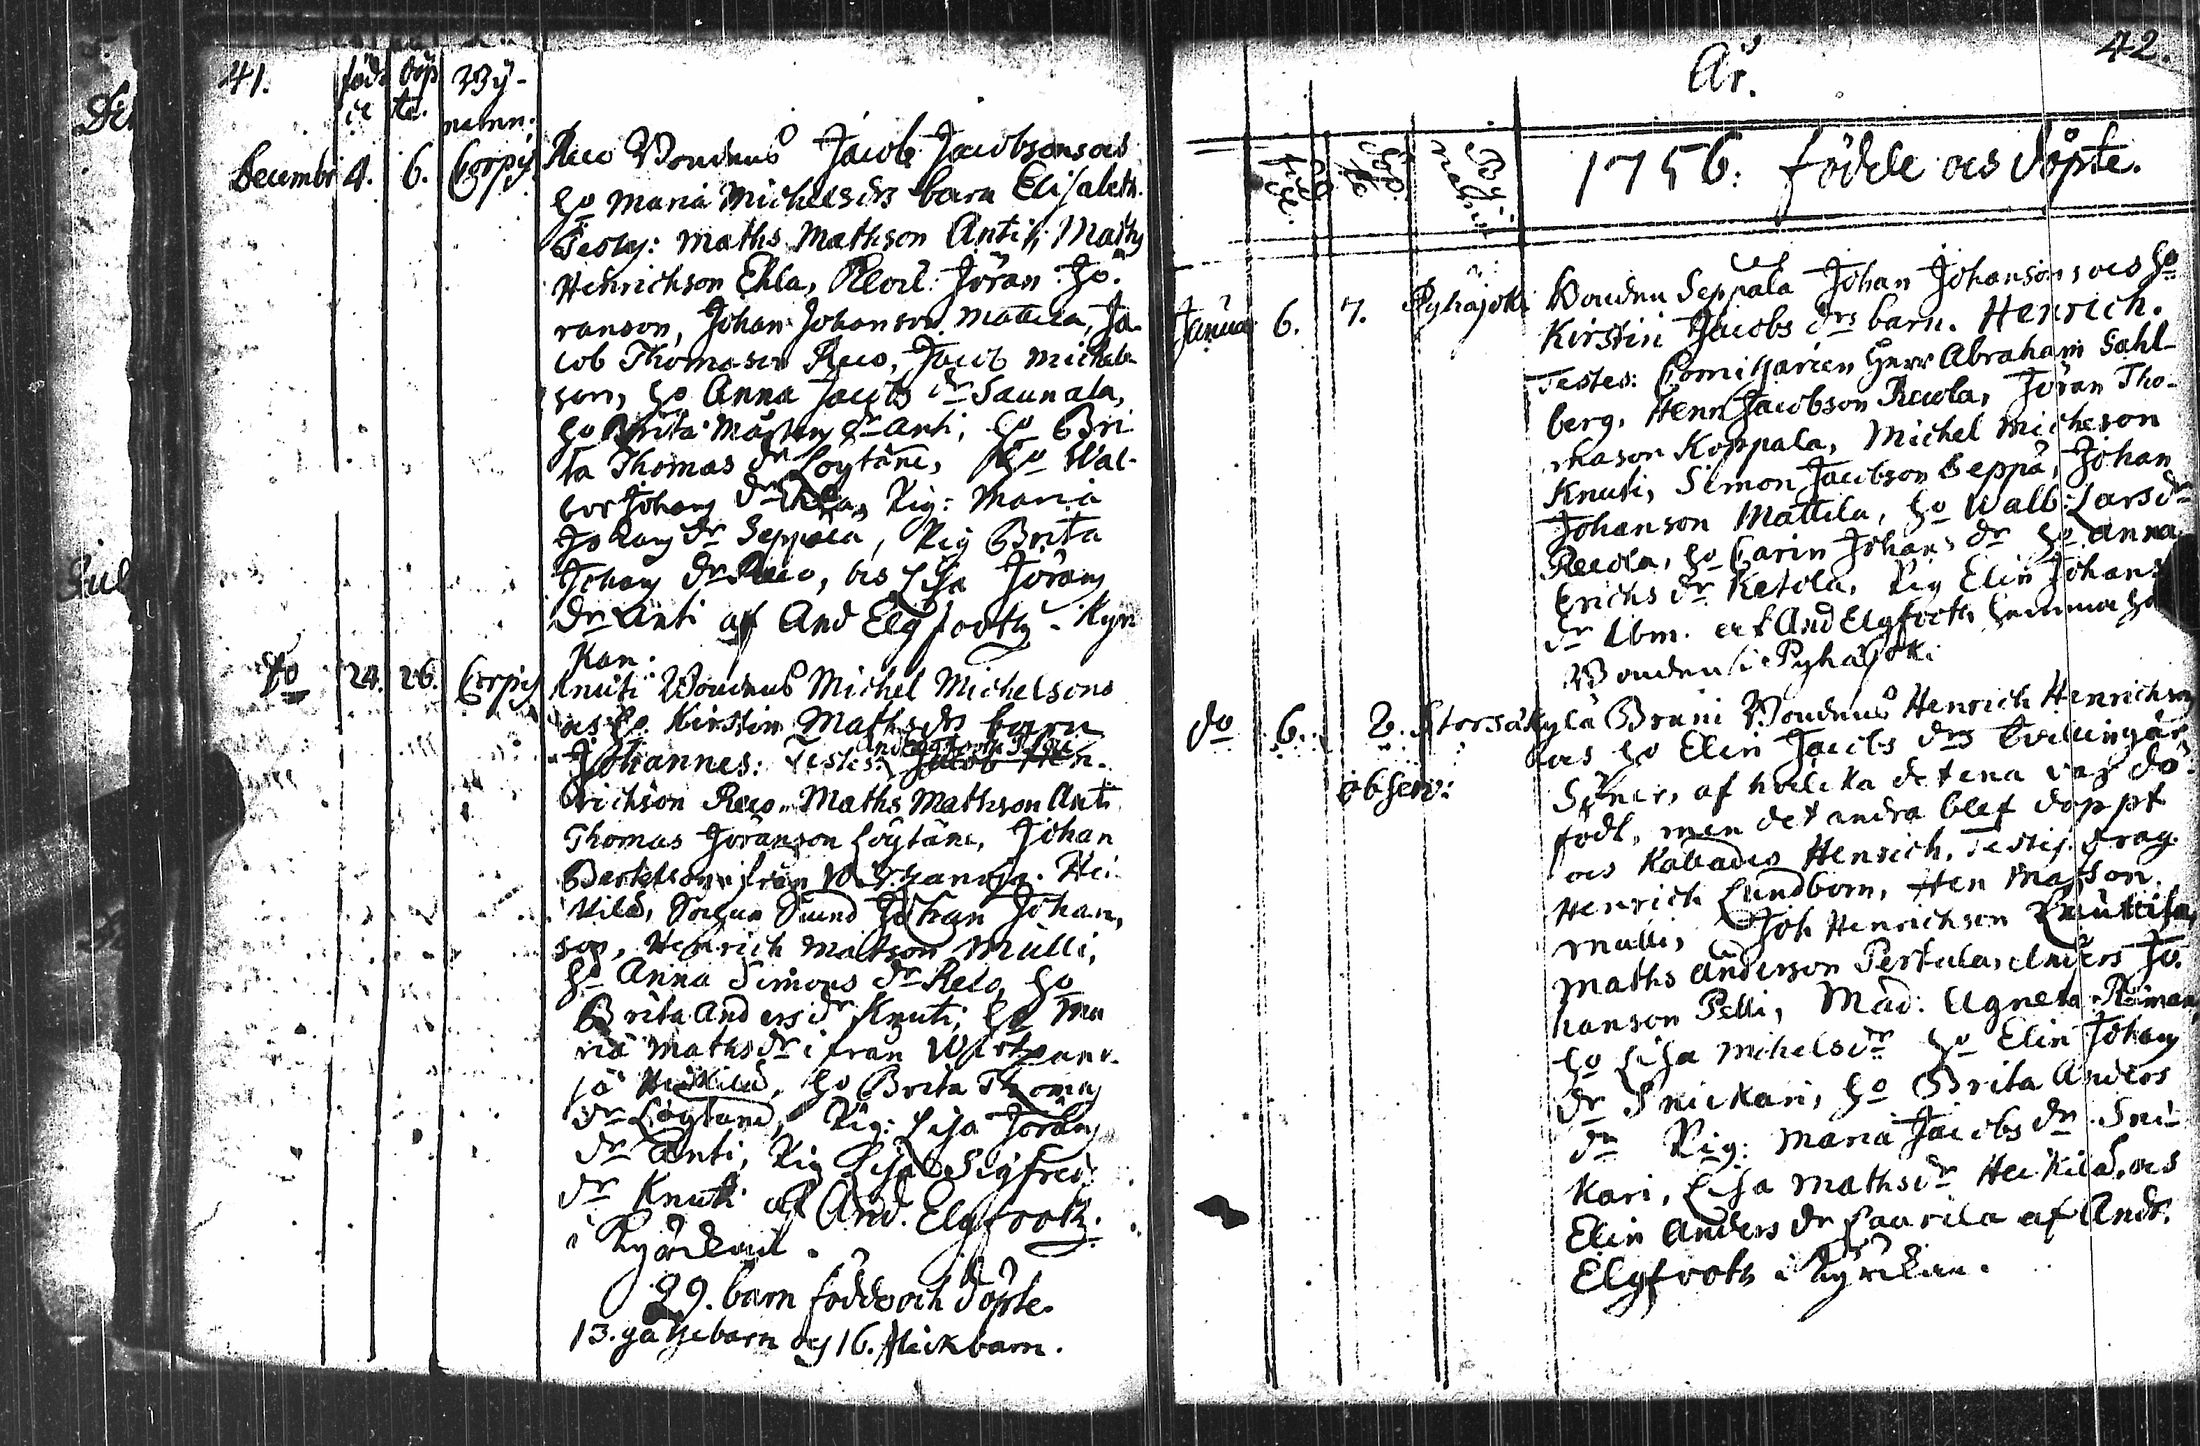 41.
födde döpte. Bynamn:
Decembr 4. 6. Corpis Reco Bondens Jacob Jacobsons oc
ho Maria Michelsdrs barn Elisabeth.
Testes: Maths Mathson Anti, Maths
Henrichson Ehla, Jöran Jö-
ranson, Johan Johanson Mattila, Ja-
cob Thomason Reco, Jacob Michel
son, ho Anna Jacobs dr Saunala,
ho Brita Mårtens dr Anti, ho Bri
ta Thomas dr Löytäne, ho Wal-
bor Johans dr Ehla, Pig: Maria
Johans dr Seppälä, Pig Brita
Johans dr Reco, oc Lisa Jörans
dr Anti af And Elgfooth i Kyr
kan.
do 24. 26. Corpis Knuti Bondens Michel Michelsons
oc ho. Kirstin Mathsdrs barn
Johannes: Testes: Jacob Hen-
richson Reco, Maths Mathson Anti
Thomas Joranson Löytäne, Johan
Bertelson ifrån Wirtzanoja. Hei
kilä, Johan Johan,
son, Henrich Matson Mulli,
ho Anna Simons dr Reco, ho
Brita Anders dr Knuti, ho Ma
ria Maths dr ifrån Wirtzano-
ja Heikilä, ho Brita Thomas
dr Löytäne, Pig: Lisa Jörans
dr Anti, Pig Lisa Sigfreds
dr Knuti af And. Elgfooth.
i Kyrkan.
29. barn födde och döpte.
13. gåssebarn och 16. flickbarn.
42.
År.
födde döpte Bynamn 1756: födde oc döpte.
Januar 6. 7. Pyhäjoki Bonden Seppälä Johan Johansons oc ho
Kirstin Jacobs drs barn. Henrich.
Testes: Comissarien Herr Abraham Sahl-
berg, Henr Jacobson Recola, Jöran Tho-
mason Koppala, Michel Michelson
Knuti, Simon Jacobson Seppä, Johan
Johanson Mattila, ho Walb: Lars dr
Recola, ho Carin Johans dr ho Anna
Erichs dr Ketola, Pig Elin Johans
dr Ibm. af And Elgfooth hemma hos
Bonden i Pyhäjoki
do 6. 7. Storsäkylä Bruni Bondens Henrich Henrichson
oc ho Elin Jacobs drs tvillingar
observ: Söner, af hvilka det ena var död
född, men det andra blef döppt
oc kallades Henrich. Testes:
Henrich Lundbom, Hen Matson
Mulli, Joh Henrichson
Maths Anderson Pertula, Anders Jo-
hanson Pelli, Mad: Agneta
ho Lisa Michelsdr ho Elin Johans
dr Snickari, ho Brita Anders
dr Pig: Maria Jacobs dr Sni-
kari, Lisa Mathsdr Heikilä, oc
Elin Anders dr Laurila af Andr.
Elgfooth i Kyrckan.